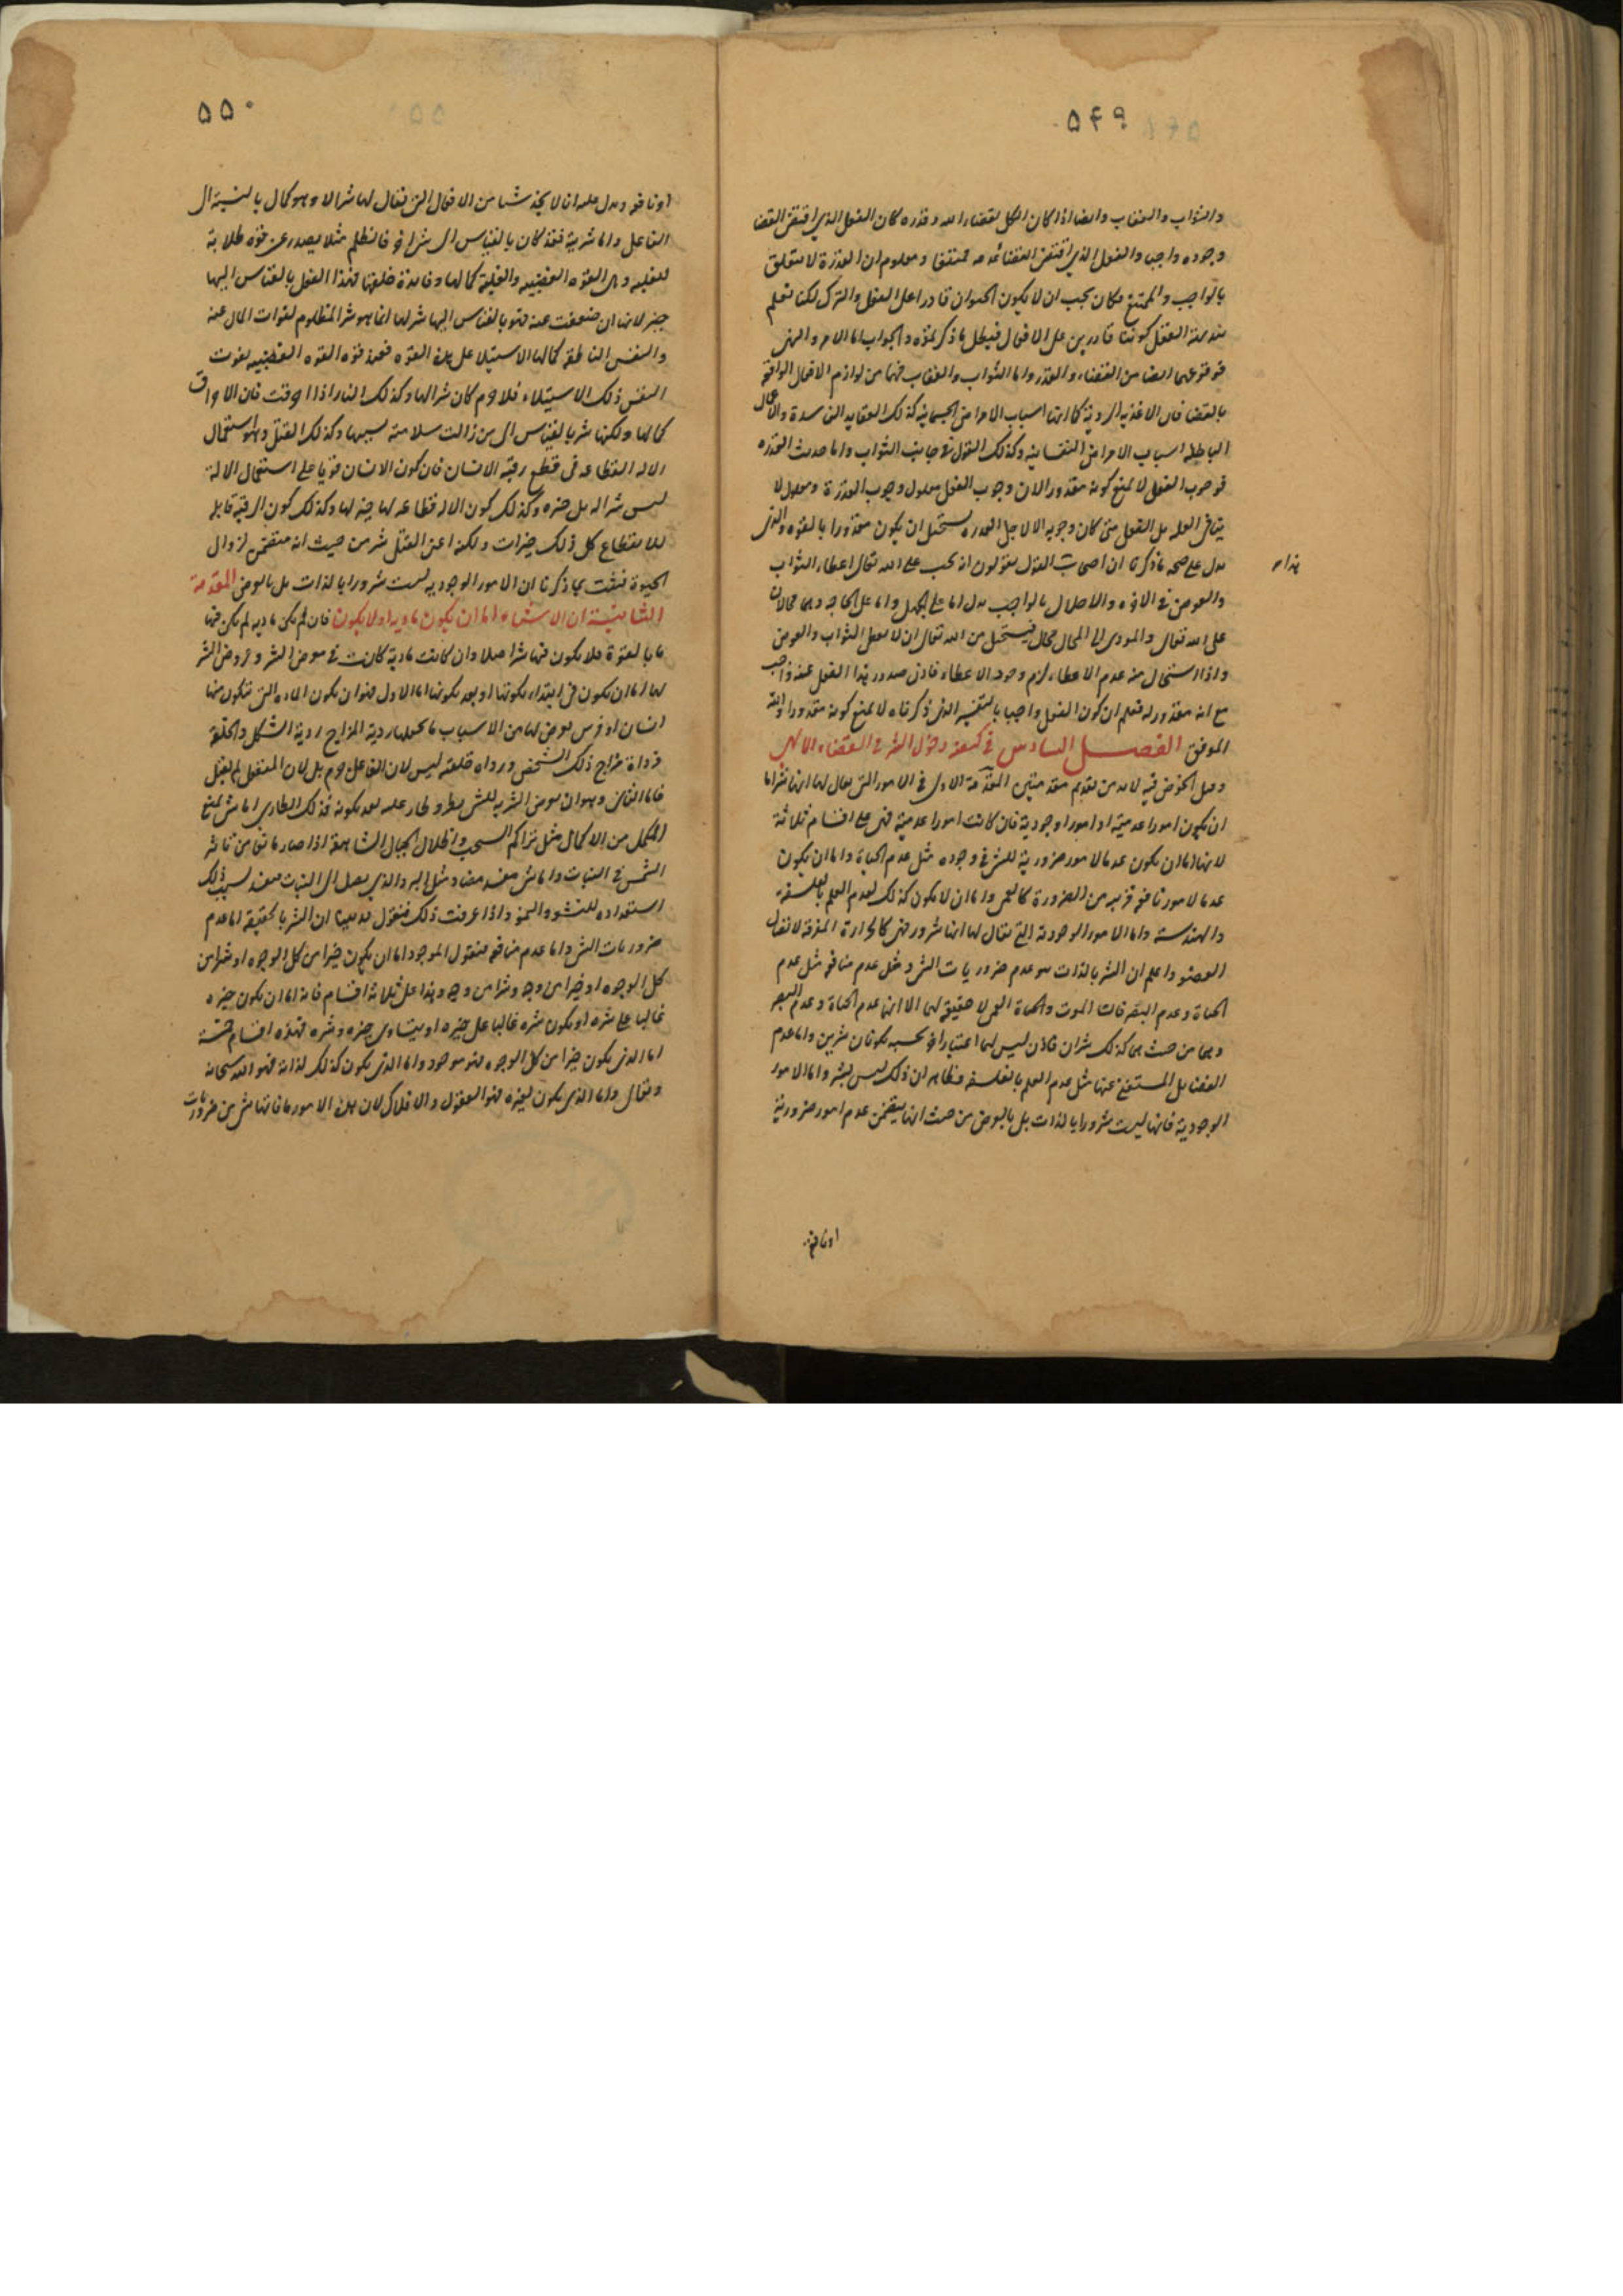 ٥٤٩
والثواب والعقاب وايضا اذا كان الكل بقضاء الله وقدره كان الفعل الذي اقتضى القضا
وجوده واجب والفعل الذي اقتضى القضا عدمه ممتنعا ومعلوم ان القدرة لا تتعلق
بالواجب والممتنع فكان يجب ان لا يكون الحيوان قادرا على الفعل والترك لكنا نعلم
ببديهة العقل كوننا قادرين على الافعال فبطل ما ذكرتموه والجواب اما الامر والنهي
فوقوعهما ايضا من القضاء والقدر واما الثواب والعقاب فهما من لوازم الافعال الواقعة
بالقضا فان الاغذية الردية كما انها اسباب الامراض الجسمانية كذلك العقايد الفاسدة والاعمال
الباطلة اسباب الامراض النفسانية وكذلك القول في جانب الثواب واما حديث القدرة
فوجوب الفعل لا يمنع كونه مقدورا لان وجوب الفعل معلول وجوب القدرة ومعلول لا
ينافي العلة بل الفعل متى كان وجوبه لا لاجل القدرة يستحيل ان يكون مقدورا بالقوة والذي
يدل على صحة ما ذكرنا ان اصحاب العدل يقولون انه يجب على الله تعالى اعطاء الثواب
هذا
والعوض في الاخرة والاخلال بالواجب يدل اما على الجهل واما على الحاجة وهما محالان
على الله تعالى والمودي الى المحال محال فيستحيل من الله تعالى ان لا يعطي الثواب والعوض
واذا استحال منه عدم الاعطاء لزم وجود الاعطاء فاذن صدور هذا الفعل عنه واجب
مع انه مقدور له فعلم ان كون الفعل واجبا بالتفسير الذي ذكرناه لا يمنع كونه مقدورا والله
الموفق الفصل السادس في كيفية دخول الشر في القضاء الالهي
وقبل الخوض فيه لا بد من تقديم مقدمتين المقدمة الاولى في الامور التي يقال لها انها شر اما
ان يكون امورا عدمية او امورا وجودية فان كانت امورا عدمية فهي على اقسام ثلاثة
لانها اما ان يكون عدما لامور ضرورية للشي في وجوده مثل عدم الحياة واما ان يكون
عدما لامور نافعة قريبة من الضرورة كالعمى واما ان لا يكون كذلك كعدم العلم بالفلسفة
والهندسة واما الامور الوجودية التي يقال لها انها شرور فهي كالحرارة المفرقة لاتصال
العضو واعلم ان الشر بالذات هو عدم ضروريات الشي وعلى عدم منافعه مثل عدم
الحياة وعدم البصر فان الموت والعمى لا حقيقة لهما الا انهما عدم الحياة وعدم البصر
وهما من حيث هما كذلك شران فاذن ليس لهما اعتبار اخر بحسبه يكونان شرين واما عدم
الفضايل المستغني عنها مثل عدم العلم بالفلسفة فظاهر ان ذلك ليس بشر واما الامور
الوجودية فانها ليست شرورا بالذات بل بالعرض من حيث انها يتضمن عدم امور ضرورية
او نافعة
٥٥٠
او نافعة ويدل عليه انا لا نجد شيا من الافعال التي يقال لها شر الا وهو كمال بالنسبة الى
الفاعل واما شريته فقد كان بالقياس الى شي اخر فالظلم مثلا يصدر عن قوة طلابة
للغلبة وهي القوة الغضبية والغلبة كمالها وفايدة خلقتها فهذا الفعل بالقياس اليها
خير لانها ان ضعفت عنه فهو بالقياس اليها شر لها انما هو شر للمظلوم لفوات المال عنه
والنفس الناطقة كمالها الاستيلا على هذه القوة فعند قوة القوة الغضبية يفوت
النفس ذلك الاستيلاء فلا جرم كان شرا لها وكذلك النار اذا احرقت فان الاحراق
كمالها ولكنها شر بالقياس الى من زالت سلامته بسببها وكذلك القتل وهو استعمال
الالة القطاعة في قطع رقبة الانسان فان كون الانسان قويا على استعمال الالة
ليس شرا له بل خيره وكذلك كون الالة قطاعة لها خير لها وكذلك كون الرقبة قابلة
للانقطاع كل ذلك خيرات ولكنه اعني القتل شر من حيث انه متضمن لزوال
الحيوة فثبت بما ذكرنا ان الامور الوجودية ليست شرورا بالذات بل بالعرض المقدمة
الثانية ان الاشياء اما ان يكون مادية او لا يكون فان لم يكن مادية لم يكن فيها
ما بالقوة فلا يكون فيها شر اصلا وان كانت مادية كانت في معرض الشر وعروض الشر
لها اما ان يكون في ابتداء تكونها او بعد تكونها اما الاول فهو ان يكون المادة التي تتكون منها
انسان او فرس يعرض لها من الاسباب ما يجعلها ردية المزاج ردية الشكل والخلقة
فرداءة مزاج ذلك الشخص ورداءة خلقته ليس لان الفاعل حرم بل لان المنفعل لم يقبل
فاما الثاني وهو ان يعرض الشر للشي بطرو طار عليه بعد تكونه فذلك الطاري اما شي يمنع
المكمل من الاكمال مثل تراكم السحب واظلال الجبال الشاهقة اذا صار مانعا من تاثير
الشمس في النبات واما شي مفسد مضاد مثل البرد الذي يصل الى النبات فيفسد بسبب ذلك
استعداده للنشو والنمو واذا عرفت ذلك فنقول قد بينا ان الشر بالحقيقة اما عدم
ضروريات الشي واما عدم منافعه فنقول الموجود اما ان يكون خيرا من كل الوجوه او شرا من
كل الوجوه او خيرا من وجه وشرا من وجه وهذا على ثلاثة اقسام فانه اما ان يكون خيره
غالبا على شره او يكون شره غالبا على خيره او يتساوى خيره وشره فهذه اقسام خمسة
اما الذي يكون خيرا من كل الوجوه فهو موجود واما الذي يكون كذلك لذاته فهو الله سبحانه
وتعالى واما الذي يكون لغيره فهو العقول والافلاك لان هذه الامور ما فاتها شي من ضروريات